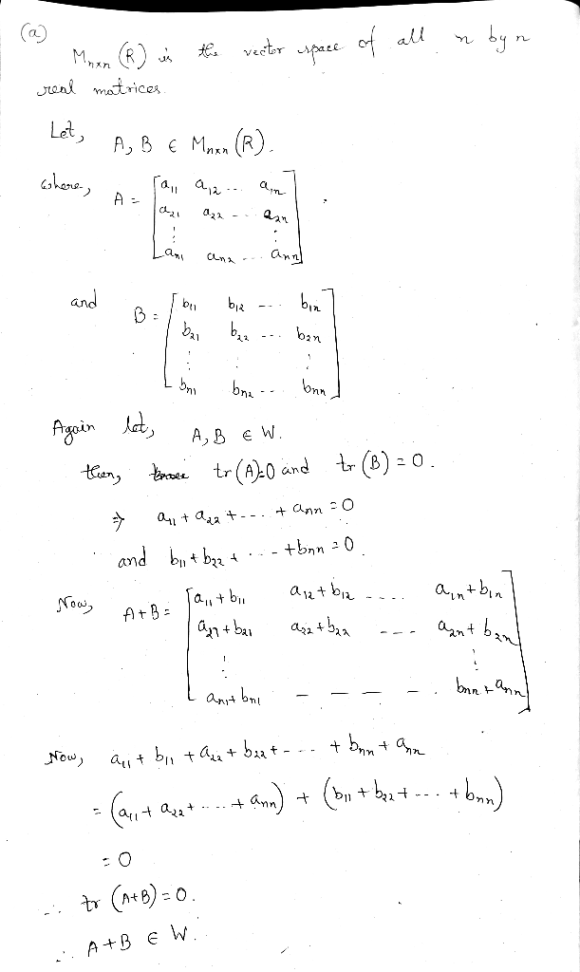 (a)
M_{n×n} (R) is the vector space of all n by n
real matrices.
Let, A, B ∈ M_{n×n} (R).
where, A = [a_{11} a_{12} ... a_{1n}
a_{21} a_{22} ... a_{2n}
⋮ ⋮
a_{n1} a_{n2} ... a_{nn}],
and B = [b_{11} b_{12} ... b_{1n}
b_{21} b_{22} ... b_{2n}
⋮ ⋮ ⋮
b_{n1} b_{n2} ... b_{nn}]
Again let, A, B ∈ W.
then, tr(A)=0 and tr(B) = 0.
⇒ a_{11} + a_{22} + ... + a_{nn} = 0
and b_{11} + b_{22} + ... + b_{nn} = 0
Now, A+B = [a_{11} + b_{11} a_{12} + b_{12} .... a_{1n} + b_{1n}
a_{21} + b_{21} a_{22} + b_{22} --- a_{2n} + b_{2n}
⋮ ⋮
a_{n1} + b_{n1} - - - - . b_{nn} + a_{nn}]
Now, a_{11} + b_{11} + a_{22} + b_{22} + ... + b_{nn} + a_{nn}
= (a_{11} + a_{22} + .... + a_{nn}) + (b_{11} + b_{22} + ... + b_{nn})
= 0
∴ tr (A+B) = 0.
∴ A+B ∈ W.